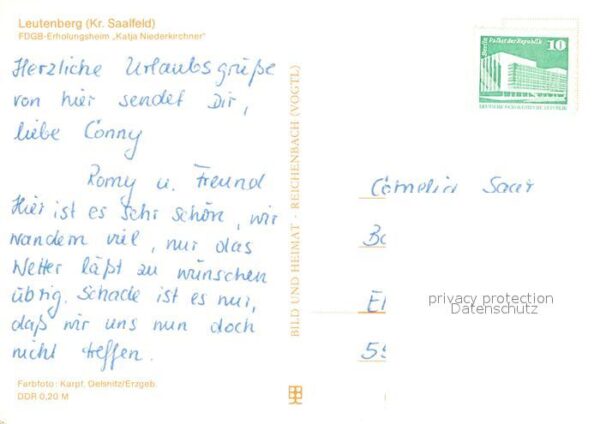 Leutenberg (Kr. Saalfeld)
FDGB-Erholungsheim „Katja Niederkirchner"
Herzliche Urlaubsgrüße
von hier sendet Dir,
liebe Conny
Romy u. Freund
Hier ist es sehr schön, wir
wandern viel, nur das
Wetter läßt zu wünschen
übrig. Schade ist es nur,
daß wir uns nun doch
nicht treffen.
Farbfoto: Karpf, Oelsnitz/Erzgeb.
DDR 0,20 M
BILD UND HEIMAT · REICHENBACH (VOGTL)
Berlin Palast der Republik
10
DEUTSCHE DEMOKRATISCHE REPUBLIK
Cornelia Saar
privacy protection
Datenschutz